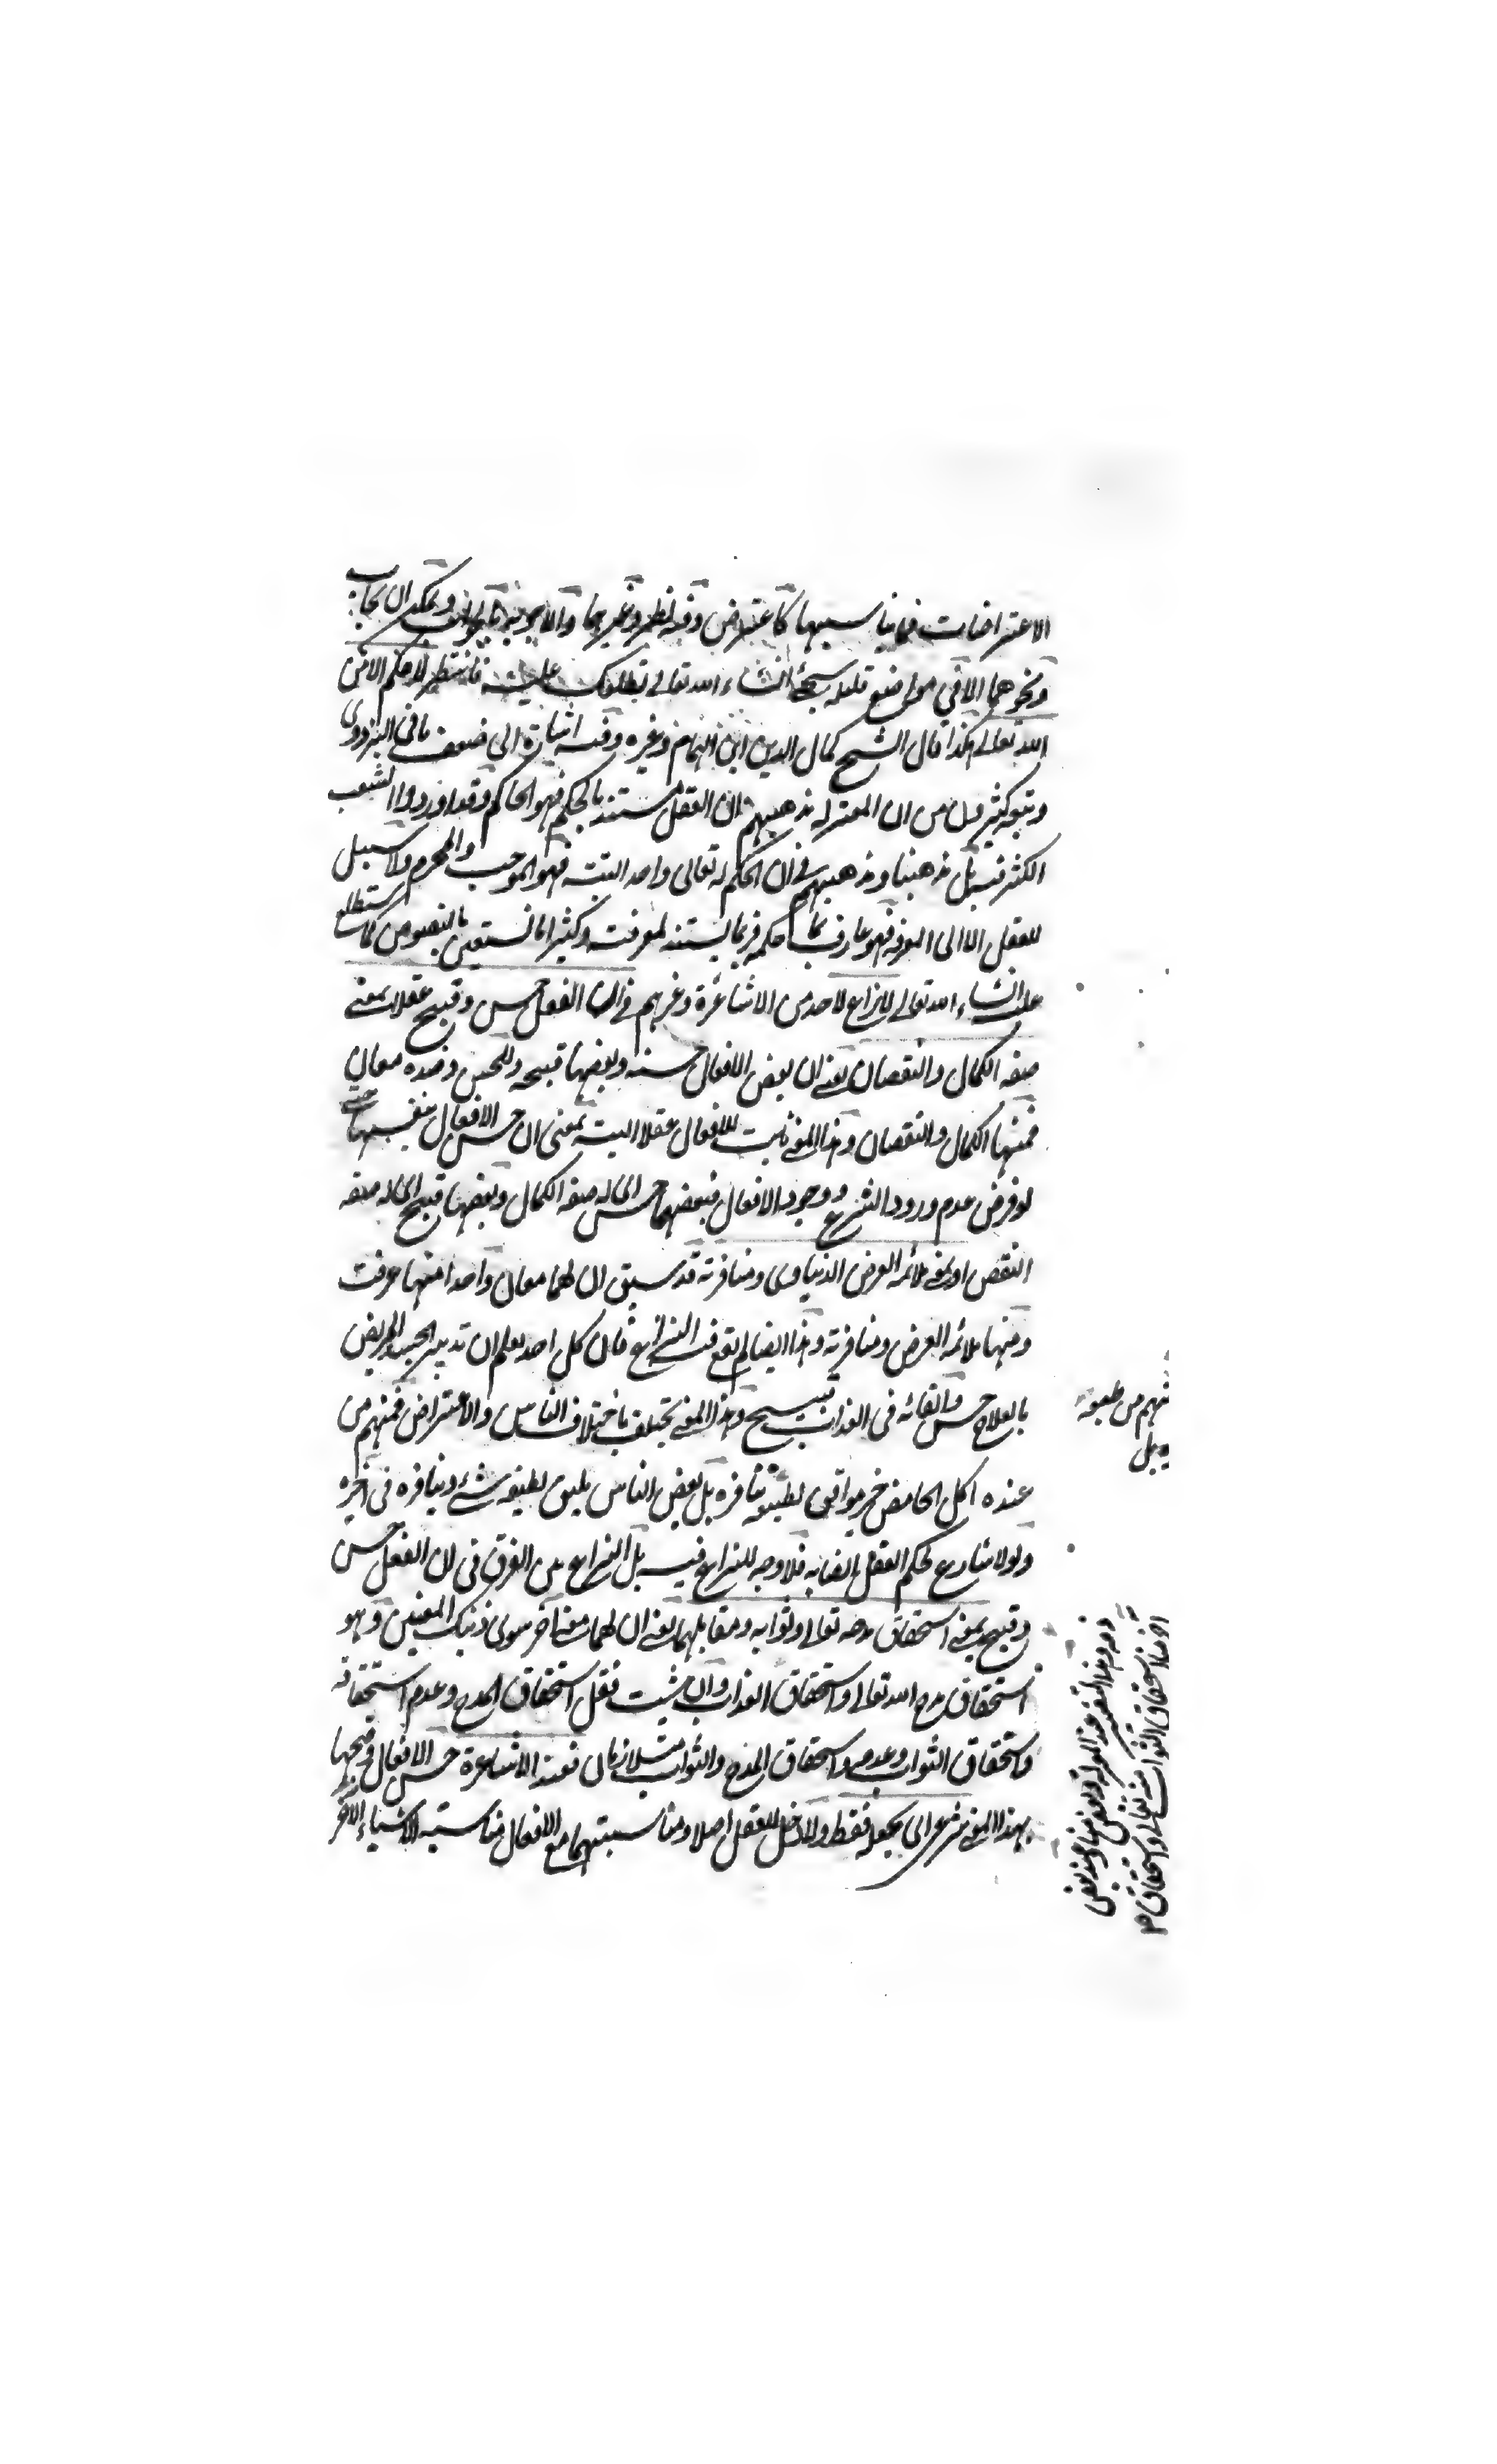 الاعتراضات فما يناسبها كاعتراض وفيه نظر وغيرهما والاجوبة بالجواب ويمكن ان يجاب
ونحوهما الا في مواضع قليلة سيجئ انشاء الله تعالى نطلعك عليه فانتظر لا حكم الا من
الله تعالى هكذا قال الشيخ كمال الدين ابن الهمام وغيره وفيه اشارة الى ضعف ما في البزدوي
وتبعه كثير من ان المعتزلة مذهبهم ان العقل مستند بالحكم فهو الحاكم وقد اوردوا الشعب
الكثير بل مذهبنا ومذهبهم في ان الحكم له تعالى واحد البتة فهو الموجب والمحرم ولا سبيل
للعقل الا الى المعرفة فهو عارف بما حكمه فربما يستند لمعرفته وكثيرا ما نستعين بالنصوص كما ستطلع
عليه انشاء الله تعالى لا نزاع لاحد من الاشاعرة وغيرهم في ان الفعل حسن وقبيح عقلا بمعنى
صفة الكمال والنقصان يعنى ان بعض الافعال حسنة وبعضها قبيحة وللحسن وضده معان
فمنها الكمال والنقصان وهذا المعنى ثابت للافعال عقلا البتة بمعنى ان حسن الافعال بنفسها حتى
لو فرض عدم ورود الشرع ووجود الافعال فبعضها حسن اى له صفة الكمال وبعضها قبيح اى له صفة
النقص او بمعنى ملائمة الغرض الدنياوى ومنافرته قد سبق ان لهما معان واحدا منها عرفت
ومنها ملائمة الغرض ومنافرته وهذا ايضا لم يقع فيه النزاع فان كل احد يعلم ان تدبير الحبيب المريض
بالعلاج حسن والقائه فى العذاب قبيح وهذا المعنى يختلف باختلاف الناس والاعتراض فمنهم من
عنده اكل الحامض خير موافق لطبيعته منافره بل بعض الناس يليق لطبيعة شئ وينافره فى اخرى
ولولا شارع لحكم العقل ايضا به فلا وجه للنزاع فيه بل النزاع من الفرق فى ان الفعل حسن
وقبيح بمعنى استحقاق مدحه تعالى وثوابه ومقابلهما يعنى ان لهما معنى آخر سوى ذينك المعنيين وهو
استحقاق مدح الله تعالى واستحقاق العذاب وان شئت فقل استحقاق المدح وعدم استحقاقه
واستحقاق الثواب وعدمه واستحقاق المدح والثواب متلازمان فعند الاشاعرة حسن الافعال وقبحها
بهذا المعنى شرعى اى بجعله فقط ولا دخل للعقل اصلا ومناسبتهما مع الافعال مناسبة الاشياء الآخر
منهم من طبيعته